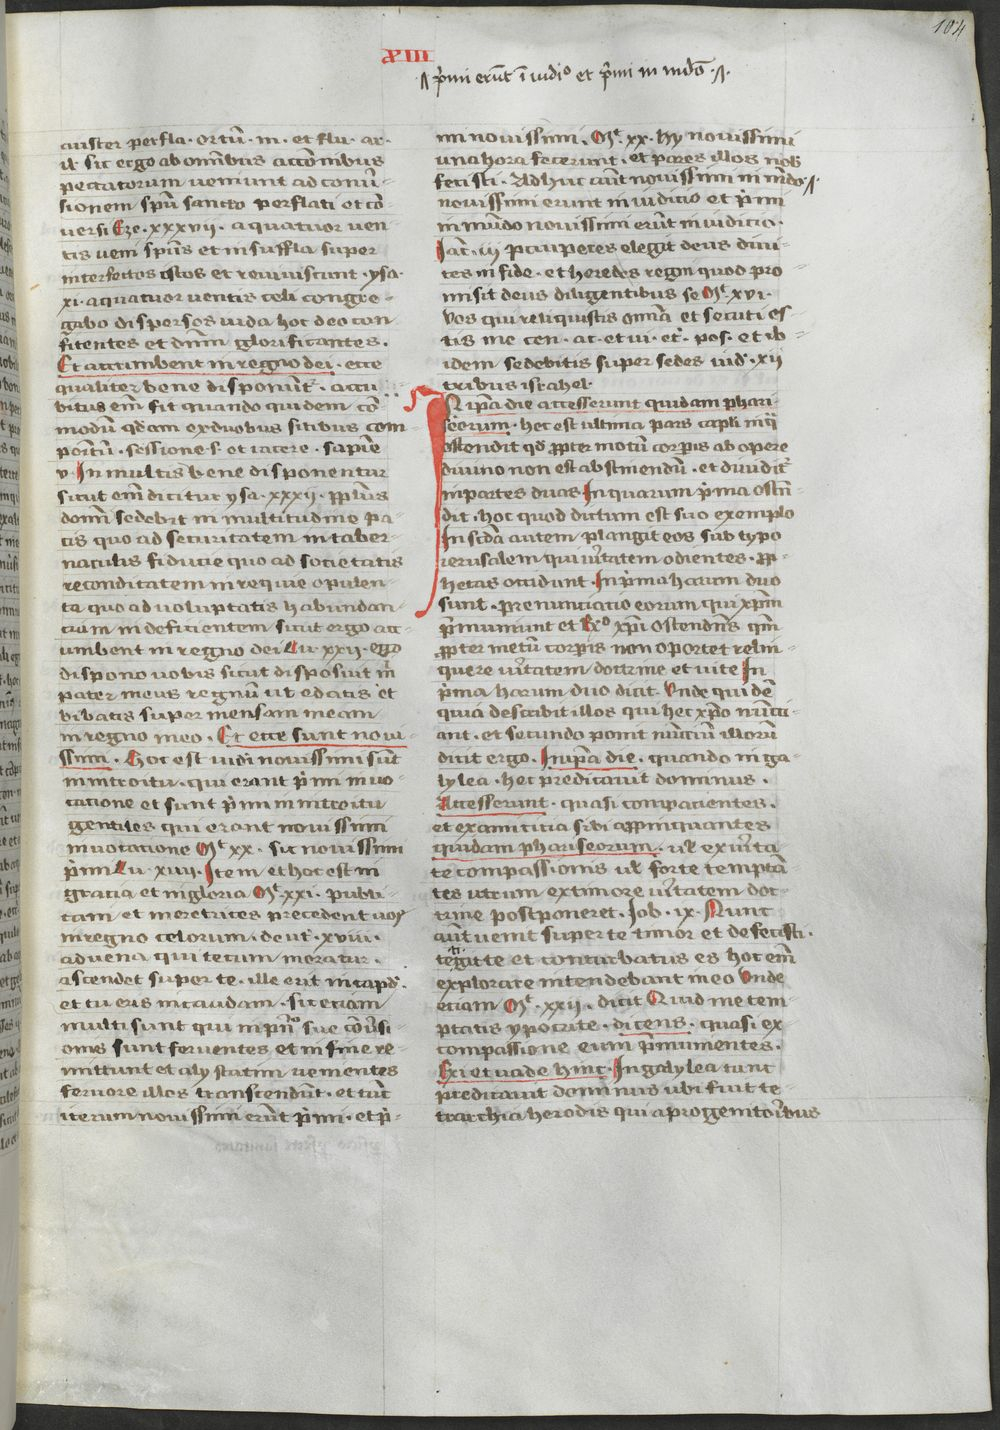 104
XIII
p̄mi erūt ī iudiº et p̄mi in mūdo
auster perfla · ortū · m · et flu · ar ·
il · sic ergo ab omībus actōmibus
peccatorum ueniunt ad conuer-
sionem spū sancto perflati et cō
uersi Eze · xxxvii · a quatuor uen
tis ueni spūs et insuffla super
interfectos istos et reuiuiscant · ysa ·
xi · a quatuor uentis celi congre-
gabo dispersos iuda hoc deo con
fitentes et dnm glorificantes ·
Et accumbent in regno dei · ecce
qualiter bene disponunt̄ · accu
bitus em̄ fit quando quidem cō
modū qdam ex duobus sitibus com
poitū · sessione · s · et iacere · sapiē
v · In multis bene disponentur
sicut em̄ dicitur ysa · xxxii · pplus
domī sedebit in multitudine pa-
cis quo ad securitatem in taber-
naculis fiducie quo ad societatis
reconditatem in requie opulen-
ta quo ad uoluptatis habundan-
ciam indeficientem sicut ergo acc
umbent in regno dei Lu · xxii · ego
dispono uobis sicut disposuit m̄
pater meus regnū ut edatis et
bibatis super mensam meam
in regno meo · Et ecce sunt noui-
ssimi · Hoc est uidi nouissimi sūt
in introitu · qui erant p̄mi in uo-
catione et sunt p̄mi in introitu
gentiles qui erant nouissimi
in uocatione Mt · xx · sic nouissimi
p̄mi Lu · xiii · Item et hoc est in
gracia et in gloria Mt · xxi · publi-
cani et meretrices precedent uos
in regno celorum · deut̄ · xviii ·
aduena qui tecum moratur ·
ascendet super te · ille erit in capd̄
et tu eris in caudam · sic etiam
multi sunt qui in pnº sue cōuersi-
onis sunt feruentes et in fine re
mittunt et alij statim uementes
feruore illos transcendūt · et tūc
iterum nouissimi erūt p̄mi · et p̄-
mi nouissimi · Mt · xx · hy nouissimi
una hora fecerunt · et pares illos nob̄
fecisti · Adhuc aūt nouissimi in mūdo
nouissimi erunt in iudicio et p̄mi
in mūndo nouissimi erūt in iudicio ·
Iac̄ · ii pauperes elegit deus diui-
tes in fide · et heredes regni quod pro-
misit deus diligentibus se Mt · xvi ·
Vos qui reliquistis omīa et secuti es-
tis me cen · ac · et ui · et̄ · pos · et ib
idem sedebitis super sedes iud̄ · xii
tribus israhel ·
IN ipa die accesserunt quidam phari-
seorum · hec est ultima pars capli in q̄
ostendit qd ppter motum corpis ab opere
diuino non est abstinendū · et diuidit̄
in partes duas In quarum p̄ma ostn̄
dit · hoc quod dictum est suo exemplo
In scda autem plangit eos sub typo
ierusalem qui uitatem odientes · pp
hetas occidunt · In p̄ma harum duo
sunt · prenunciatio eorum qui xpm
p̄muniunt et Rº xpi ostendnīs qm̄
ppter metū corpis non oportet relin-
quere uitatem doctrine et uite In
p̄ma harum duo dicit · Vnde quidē
quia describit illos qui hec xpo nūnci-
ant · et secundo ponit nūncium illorū
dicit ergo · In ipa die · quando in ga-
lylea · hec predicauit dominus ·
Accesserunt · quasi compacientes ·
et ex amicicia sibi appinquantes
quidam phariseorum · ul ex uita-
te compassionis ul forte temptā-
tes utrum ex timore uitatem doc-
trine postponeret · Iob · ix · Nunc
aūt uenit super te timor et defecisti ·
tetigit te et conturbatus es hoc em̄
explorare intendebant in eo Vnde
etiam Mt · xxii · dicit Quid me tem-
ptatis ypocrite · dicens · quasi ex
compassione eum p̄munientes ·
Exi et uade hinc · In galylea tunc
predicauit dominus ubi fuit te-
trarchia herodis qui a progenitoribus